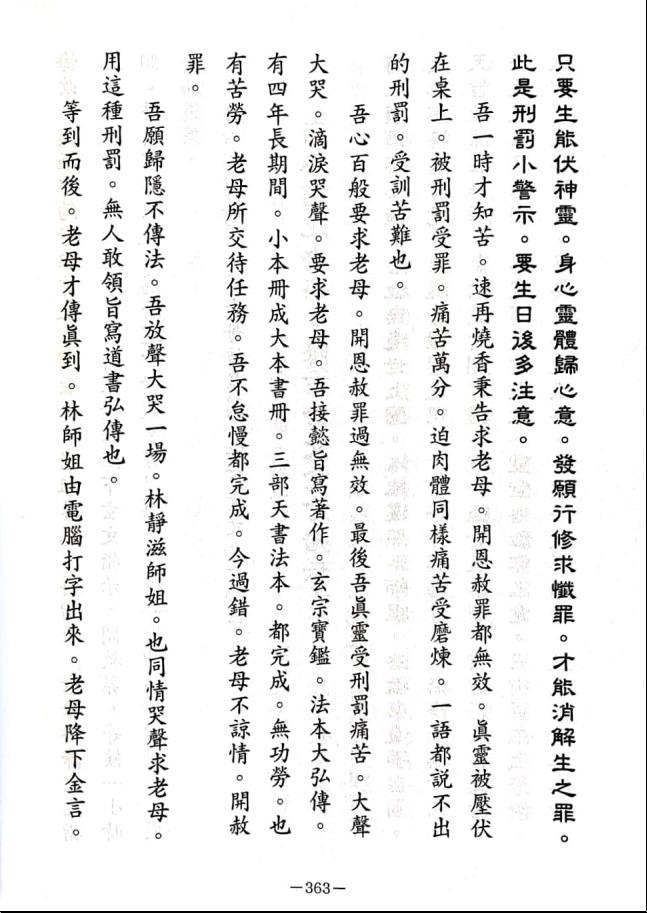 只要生能伏神靈。身心靈體歸心意。發願行修求懺罪。才能消解生之罪。
此是刑罰小警示。要生日後多注意。
吾一時才知苦。速再燒香秉告求老母。開恩赦罪都無效。眞靈被壓伏
在桌上。被刑罰受罪。痛苦萬分。迫肉體同樣痛苦受磨煉。一語都說不出
的刑罰。受訓苦難也。
吾心百般要求老母。開恩赦罪過無效。最後吾眞靈受刑罰痛苦。大聲
大哭。滴淚哭聲。要求老母。吾接懿旨寫著作。玄宗寶鑑。法本大弘傳。
有四年長期間。小本冊成大本書冊。三部天書法本。都完成。無功勞。也
有苦勞。老母所交待任務。吾不怠慢都完成。今過錯。老母不諒情。開赦
罪。
吾願歸隱不傳法。吾放聲大哭一場。林靜滋師姐。也同情哭聲求老母。
用這種刑罰。無人敢領旨寫道書弘傳也。
等到而後。老母才傳眞到。林師姐由電腦打字出來。老母降下金言。
—363—